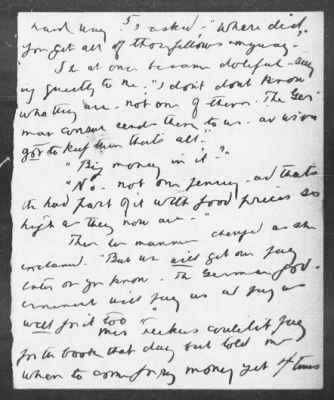 way. I asked, "Where did
you get all of those fellows anyway."
She at once became doleful - say
ing quietly to me, "I don't dont know
who they are - not one of them. The Ger
man consul sends them to us - and we've
got to keep them that's all."
"Big money in it"?
"No - not one penny - and thats
the bad part of it with food prices so
high as they now are."
Then her manner changed as she
exclaimed. "But we will get our pay
later on you know. The German gov-
ernment will pay us and pay us
well for it too"
Mrs couldn't pay
for the book that day but told me
when to come for my money yet 4 times